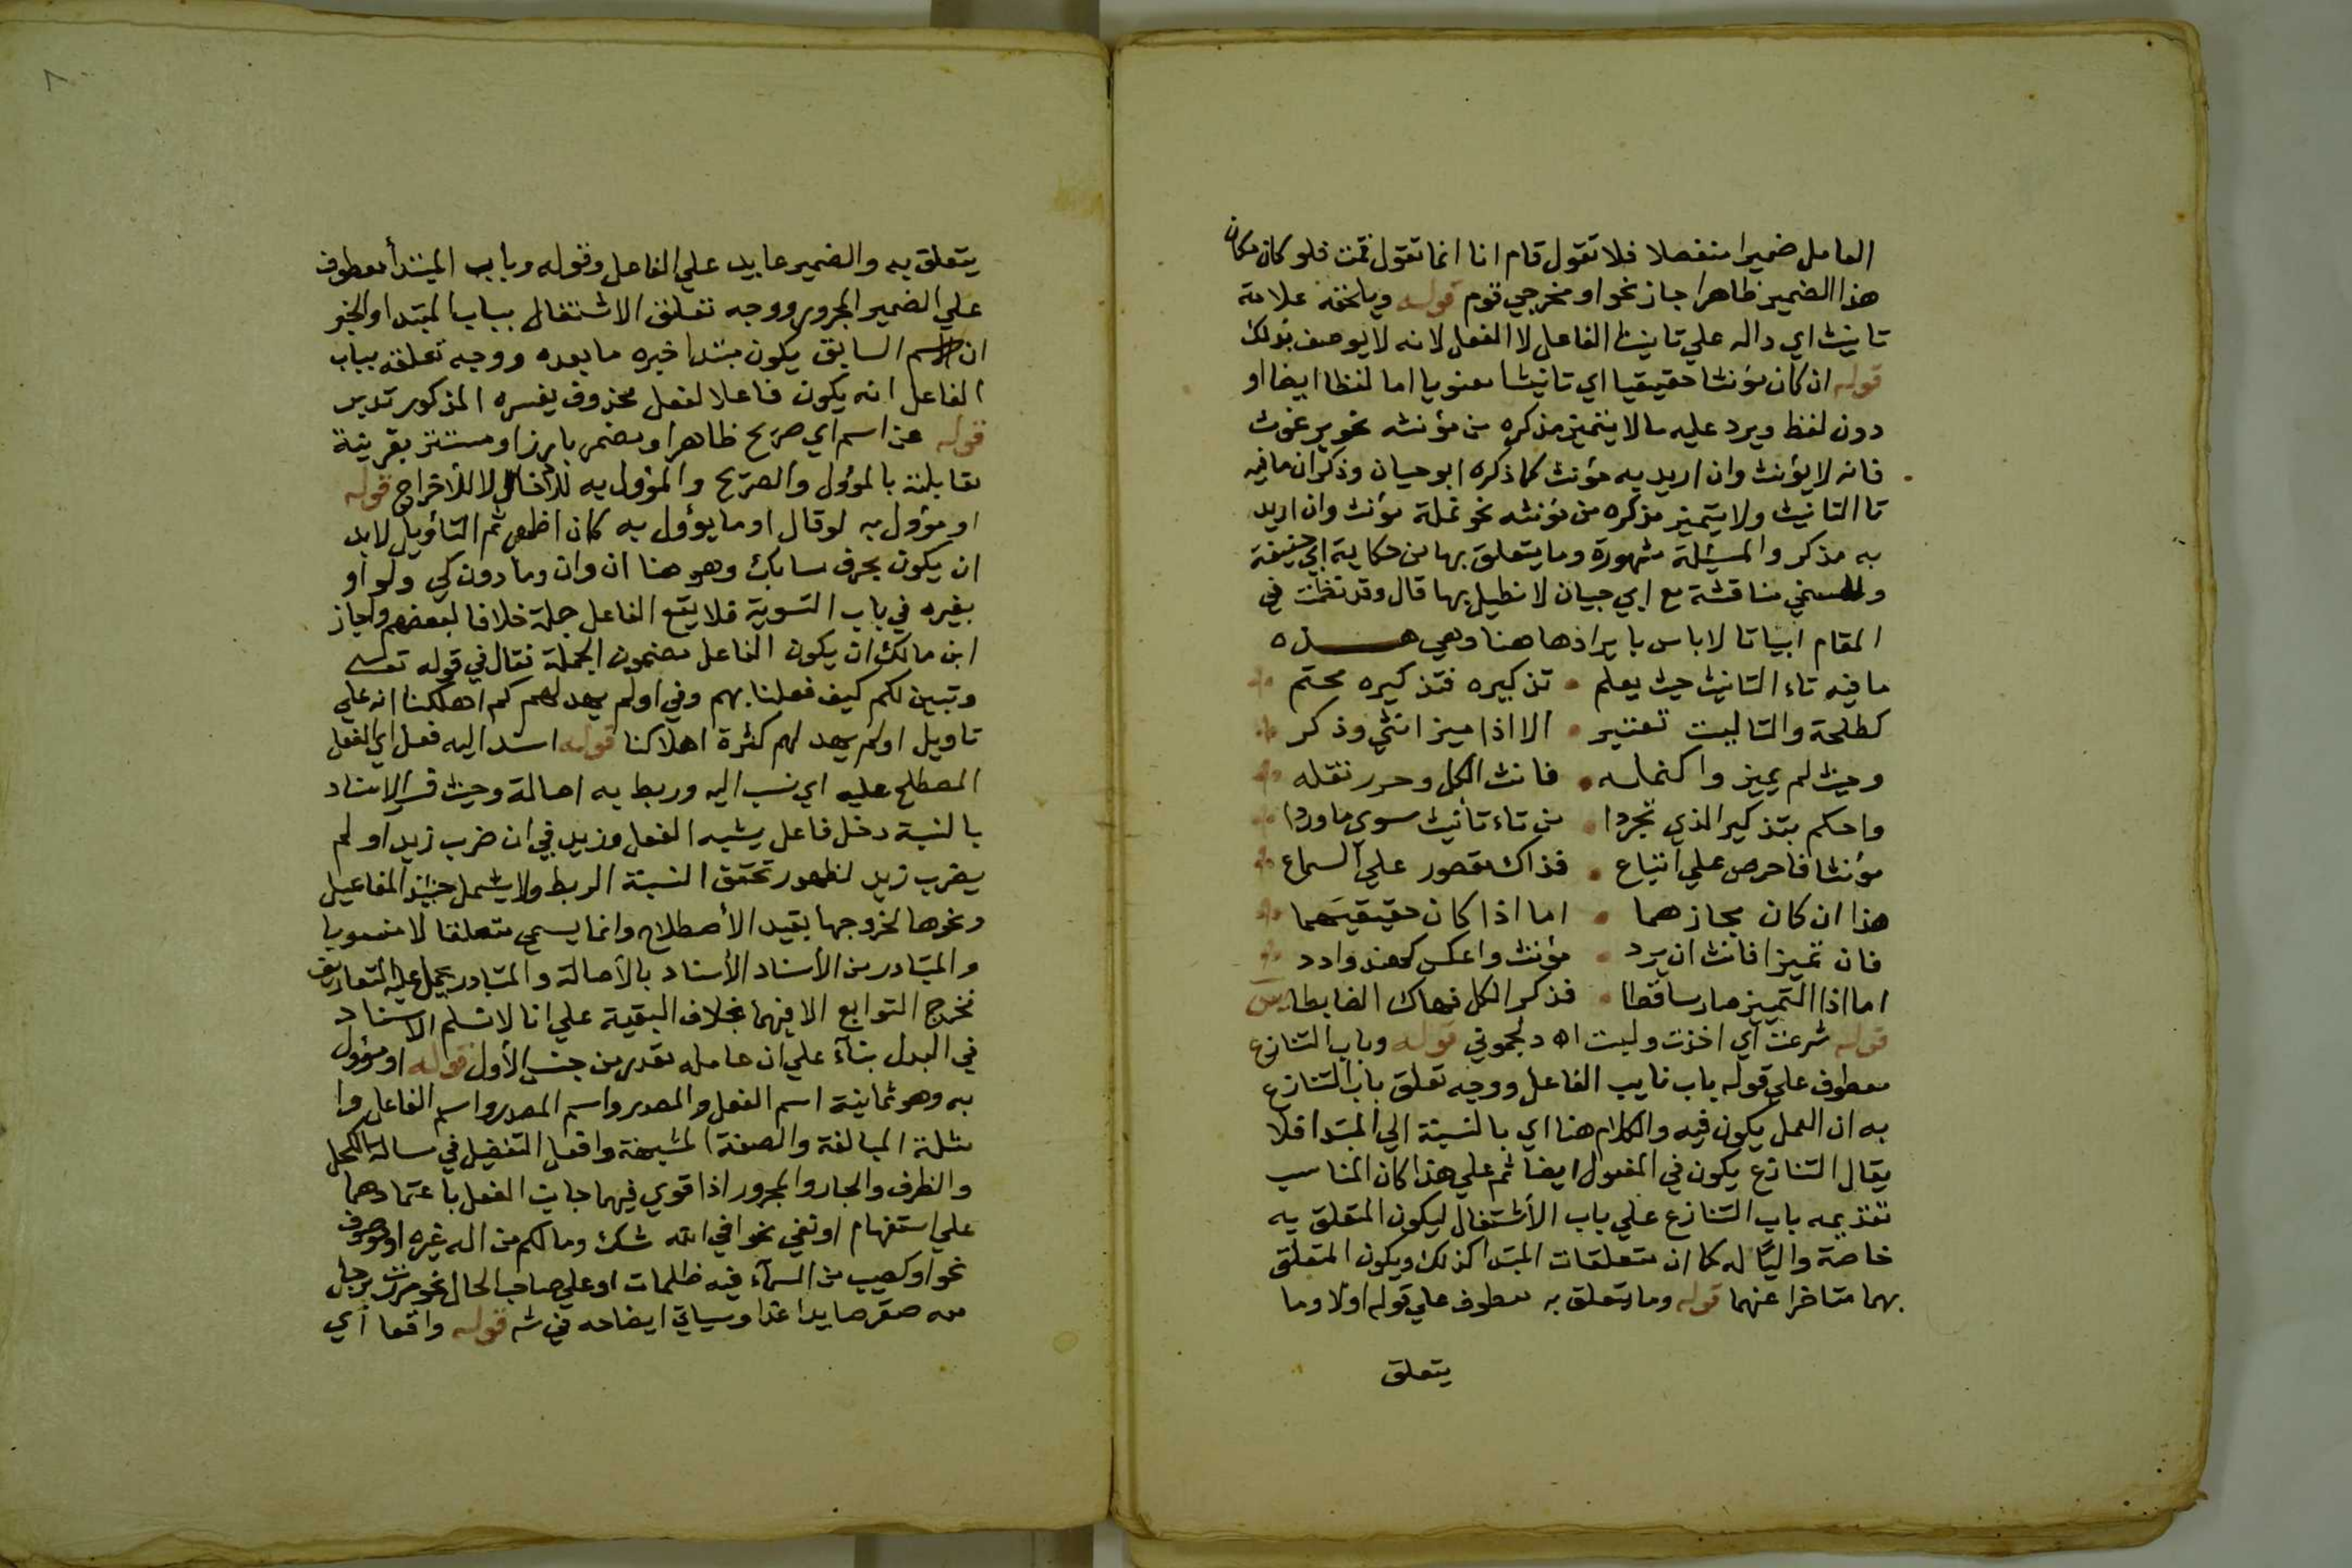 العامل ضميرا منفصلا فلا تقول قام انا انما تقول قمت فلو كان مكان
هذا الضمير ظاهرا جاز نحو او مخرجي قوم قوله ويلحقه علامة
تانيث اي داله علي تانيث الفاعل لا الفعل لانه لا يوصف بذلك
قوله ان كان مؤنثا حقيقيا اي تانيثا معنويا اما لفظا ايضا او
دون لفظ ويرد عليه ما لا يتميز مذكره من مؤنثه نحو برغوث
فانه لا يؤنث وان اريد به مؤنث كما ذكره ابو حيان وذكر ان ما فيه
تا التانيث ولا يتميز مذكره من مؤنثه نحو نملة مؤنث وان اريد
به مذكر والمسئلة مشهورة وما يتعلق بها من حكاية ابي حنيفة
مناقشة مع ابي حيان لا نطيل بها قال وقد نظمت في
المقام ابياتا لا باس بايرادها هنا وهي هـــذه
ما فيه تاء التانيث حيث يعلم • تذكيره فتذكيره محتم
كطلحة والتا ليست تعتبر • الا اذا ميز انثي وذكر
وحيث لم يميز وا كنمله • فانث الكل وحرر نقله
واحكم بتذكير الذي تجردا • من تاء تأنيث سوي ما وردا
مؤنثا فاحرص علي اتباع • فذاك مقصور علي السماع
هذا ان كان مجازهما • اما اذا كان حقيقيهما
فان تميزا فانث ان يرد • مؤنث واعكس كهند وادد
اما اذا التميز صار ساقطا • فذكر الكل فهاك الضابطا
قوله شرعت اي اخذت وليت قوله وباب التنازع
معطوف علي قوله باب نايب الفاعل ووجه تعلق باب التنازع
به ان العمل يكون فيه والكلام هنا اي بالنسبة الي المبتدا فلا
يقال التنازع يكون في المفعول ايضا ثم علي هذا كان المناسب
تقديمه باب التنازع علي باب الأشتغال ليكون المتعلق به
خاصة واليًا له كما ان متعلقات المبتدا كذلك ويكون المتعلق
بهما متاخرا عنهما قوله وما يتعلق به معطوف علي قوله اولا وما
يتعلق
يتعلق به والضمير عايد علي الفاعل وقوله وباب المبتدأ معطوف
علي الضمير المجرور ووجه تعلق الاشتغال بباب المبتدا والخبر
ان الاسم السابق يكون مبتدا خبره ما بعده ووجه تعلقه بباب
الفاعل انه يكون فاعلا لفعل محذوف يفسره المذكور تدبر
قوله عن اسم اي صريح ظاهر او مضمر بارز او مستتر بقرينة
مقابلته بالمؤول والصريح والمؤول به للأدخال لا للأخراج قوله
او مؤول به لو قال او ما يؤول به كان اظهر ثم التأويل لابد
ان يكون بحرف سابك وهو هنا ان وان وما دون كي ولو او
بغيره في باب التسوية فلا يقع الفاعل جملة خلافا لبعضهم واجاز
ابن مالك ان يكون الفاعل مضمون الجملة فقال في قوله تعالي
وتبين لكم كيف فعلنا بهم وفي اولم يهد لهم كم اهلكنا انه علي
تاويل اولم يهد لهم كثرة اهلاكنا قوله اسند اليه فعل اي الفعل
المصطلح عليه اي نسب اليه وربط به اصالة وحيث فسر الاسناد
بالنسبة دخل فاعل يشبه الفعل وزيد في ان ضرب زيد او لم
يضرب زيد لظهور تحقق النسبة الربط ولا يشمل حينئذ المفاعيل
ونحوها لخروجها بقيد الأصطلاح وانما يسمي متعلقا لا منسوبا
والمتبادر من الأسناد الأسناد بالأصالة والمتبادر يحمل عليه التعاريف
فخرج التوابع الا فيهما بخلاف البقية علي انا لا نسلم الاسناد
في البدل بناء علي ان عامله مقدر من جنس الأول قوله او مؤول
به وهو ثمانية اسم الفعل والمصدر واسم المصدر واسم الفاعل وا
مثلة المبالغة والصفة المشبهة وافعل التفضيل في مسالة الكحل
والظرف والجار والمجرور اذا قوي فيهما جانب الفعل باعتمادهما
علي استفهام او نفي نحو افي الله شك وما لكم من اله غيره او موصوف
نحو او كصيب من السمآء فيه ظلمات او علي صاحب الحال نحو مررت برجل
معه صقر صايدا غدا وسياتي ايضاحه في قوله واقعا اي